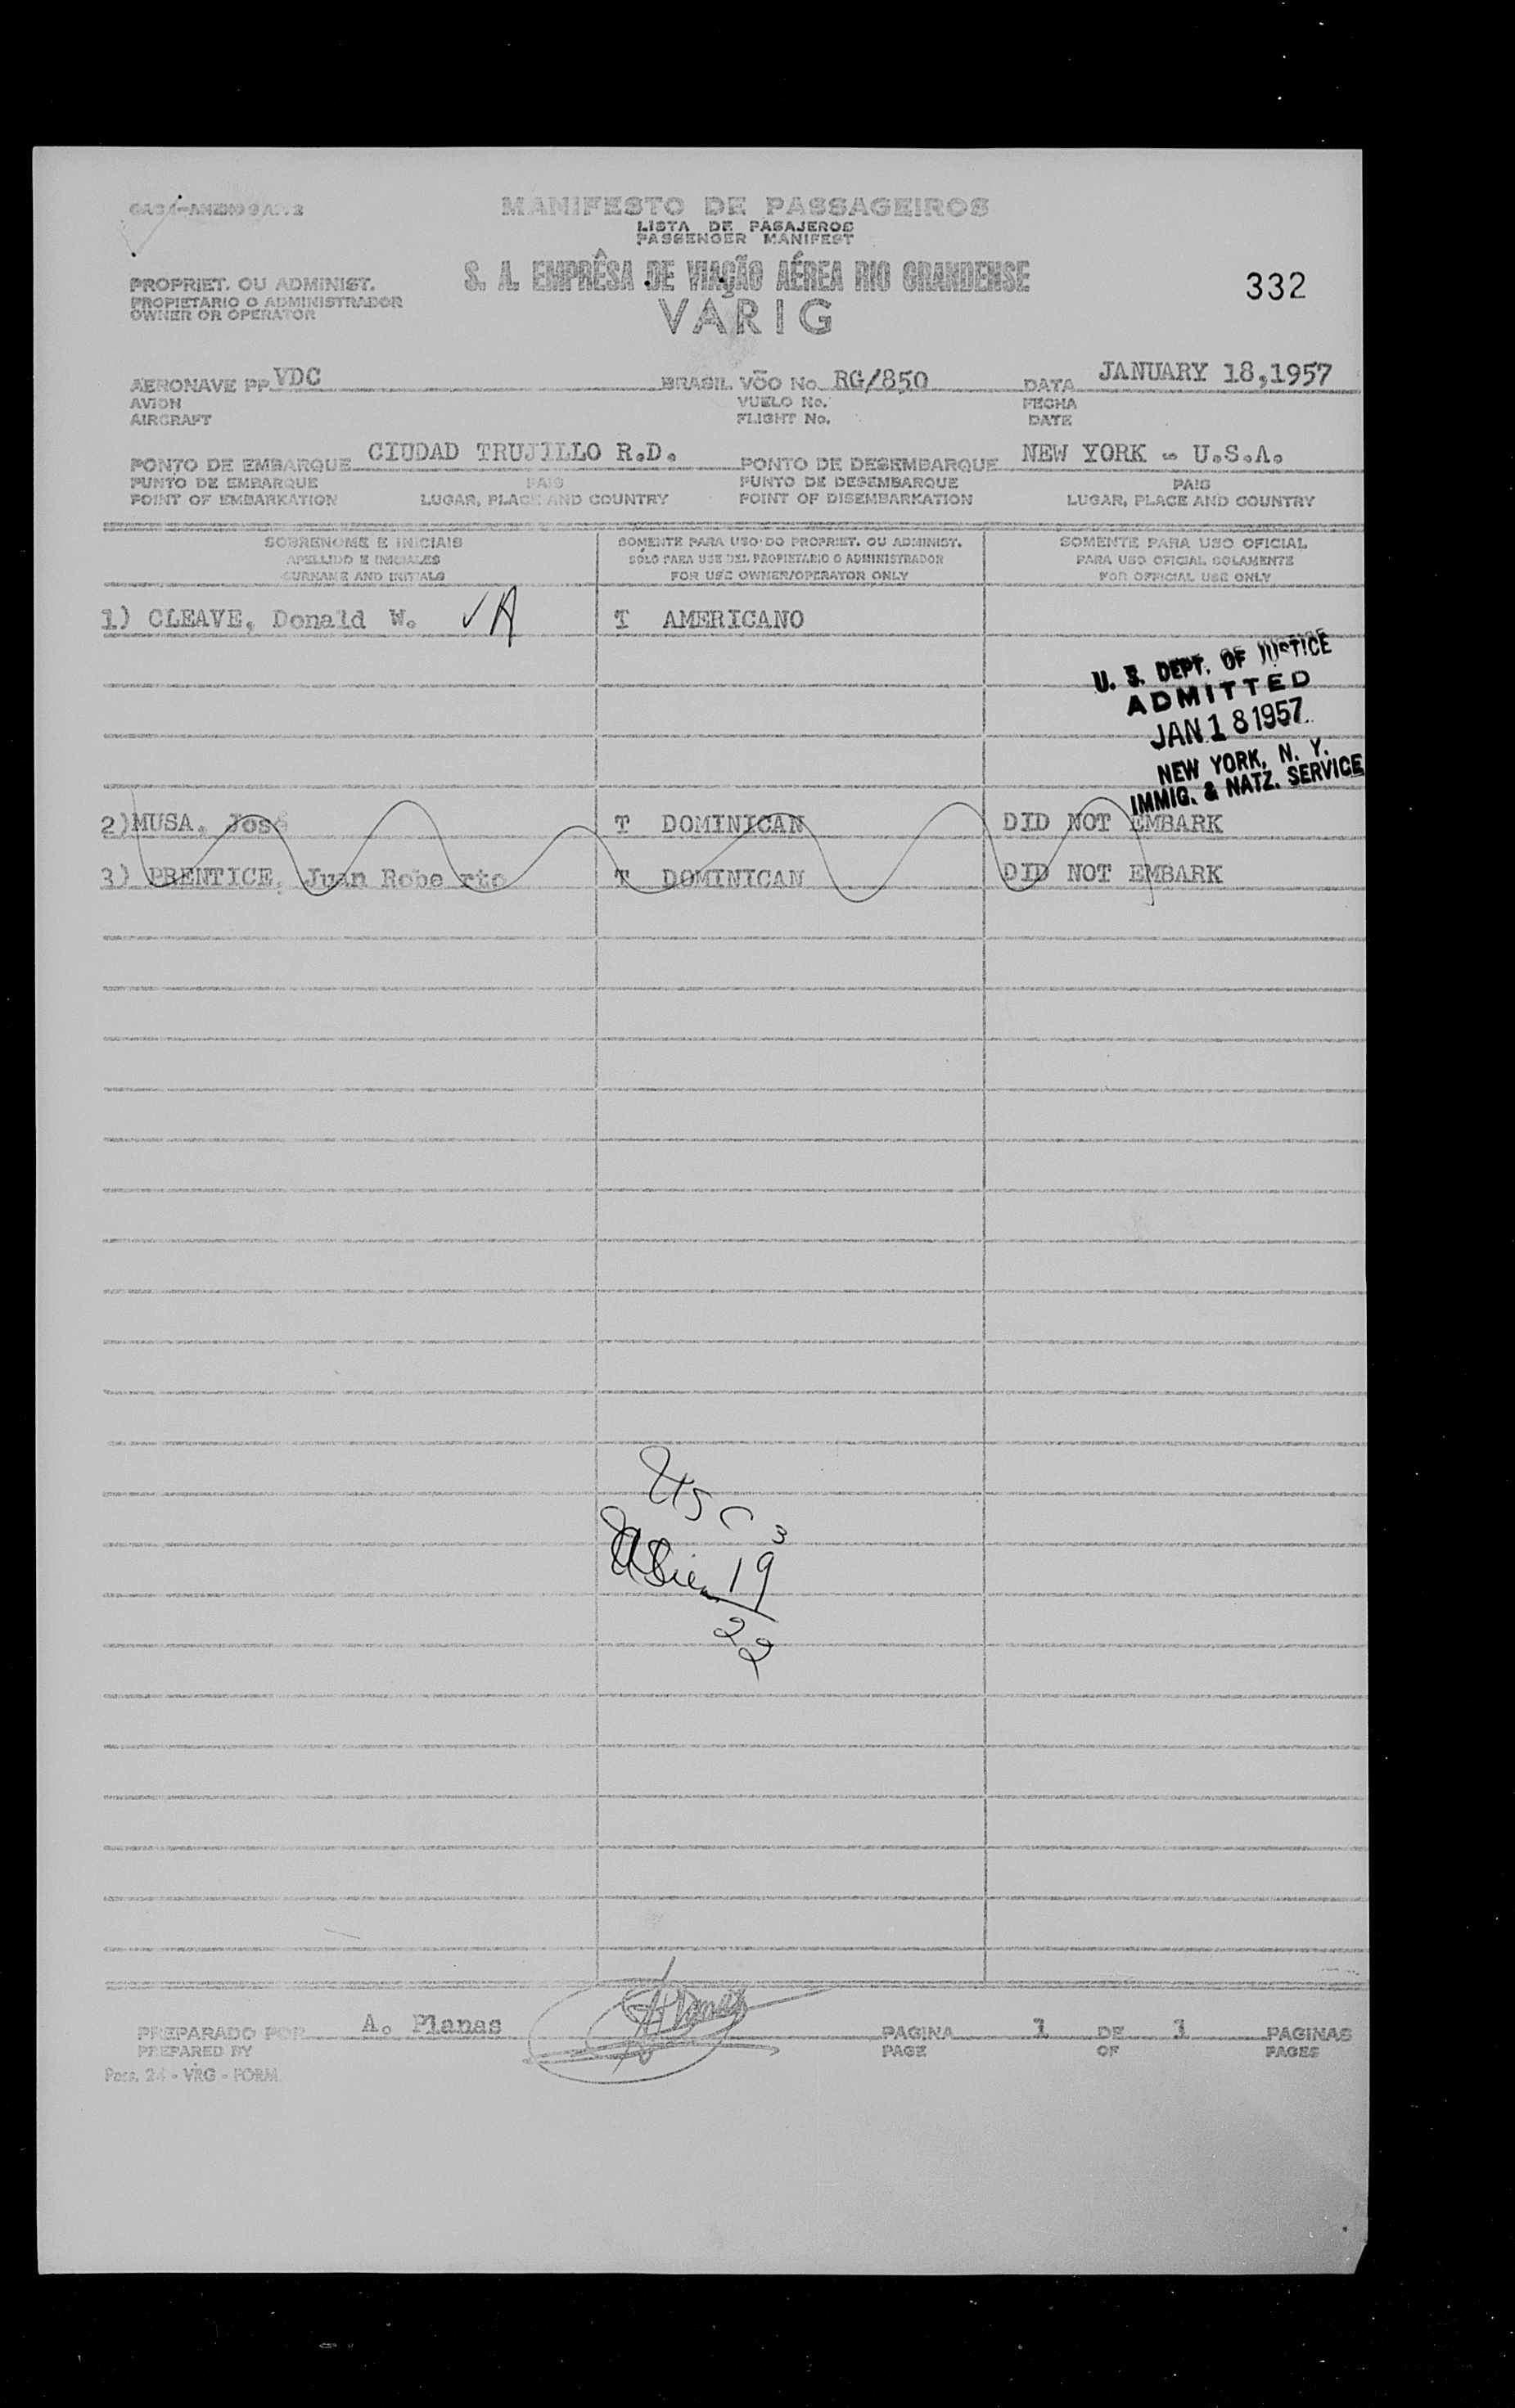 MANIFESTO DE PASSAGEIROS
LISTA DE PASAJEROS
PASSENGER MANIFEST
PROPRIET. OU ADMINIST.
PROPIETARIO O ADMINISTRADOR
OWNER OR OPERATOR
S. A. EMPRÊSA DE VIAÇÃO AÉREA RIO GRANDENSE
VARIG
332
AERONAVE PP VDC BRASIL VÔO No. RG/850 DATA JANUARY 18,1957
AVION VUELO No. FECHA
AIRCRAFT FLIGHT No. DATE
PONTO DE EMBARQUE CIUDAD TRUJILLO R.D. PONTO DE DESEMBARQUE NEW YORK - U.S.A.
PUNTO DE EMBARQUE PAIS PUNTO DE DESEMBARQUE PAIS
POINT OF EMBARKATION LUGAR, PLACE AND COUNTRY POINT OF DISEMBARKATION LUGAR, PLACE AND COUNTRY
SOBRENOME E INICIAIS SOMENTE PARA USO DO PROPRIET. OU ADMINIST. SOMENTE PARA USO OFICIAL
APELLIDO E INICIALES SÓLO PARA USE DEL PROPIETARIO O ADMINISTRADOR PARA USO OFICIAL SOLAMENTE
SURNAME AND INITIALS FOR USE OWNER/OPERATOR ONLY FOR OFFICIAL USE ONLY
1) CLEAVE, Donald W. ✓ A T AMERICANO
U. S. DEPT. OF JUSTICE
ADMITTED
JAN 18 1957
NEW YORK, N. Y.
IMMIG. & NATZ. SERVICE
2)MUSA, José T DOMINICAN DID NOT EMBARK
3) PRENTICE, Juan Robe rto T DOMINICAN DID NOT EMBARK
USC 3
Alien 19
22
PREPARADO POR A. Planas PAGINA 1 DE 1 PAGINAS
PREPARED BY PAGE OF PAGES
Pass. 24 - VRG - FORM.